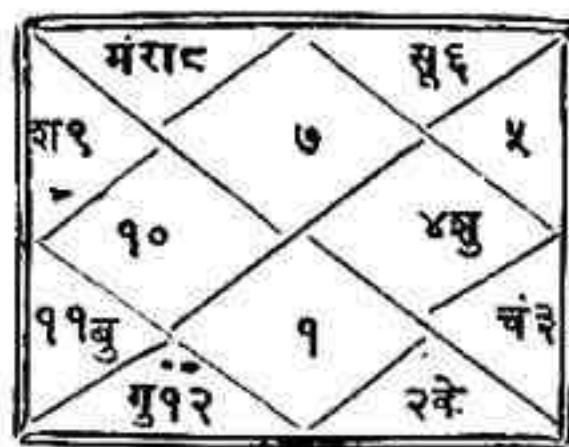 मंरा८
सू६
श९
७
५
१०
४शु
११बु
१
चं३
गु१२
२के